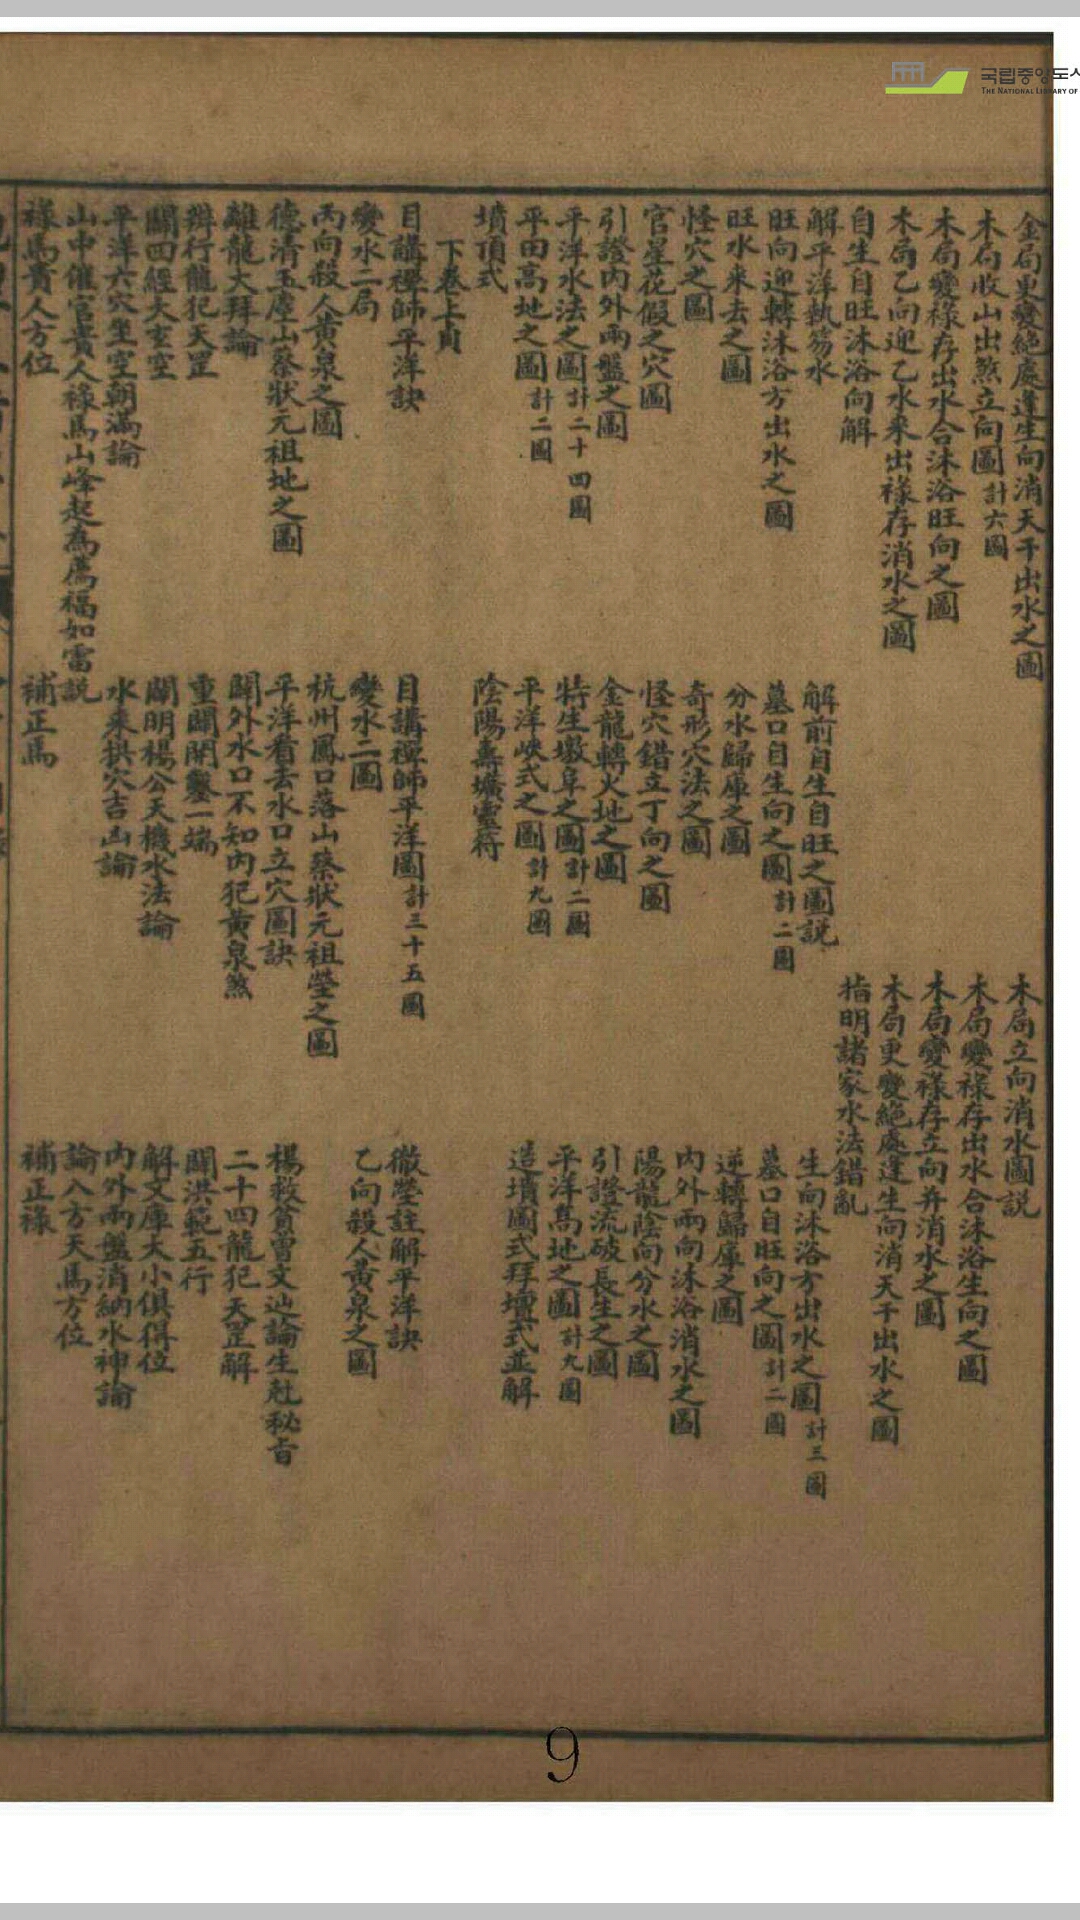 국립중앙도서
THE NATIONAL LIBRARY OF
金局更變絕處逢生向消天干出水之圖
木局立向消水圖説
木局收山出煞立向圖計六圖
木局變祿存出水合沐浴生向之圖
木局變祿存出水合沐浴旺向之圖
木局變祿存立向弁消水之圖
木局乙向迎乙水來出祿存消水之圖
木局更變絕處逢生向消天干出水之圖
自生自旺沐浴向解
指明諸家水法錯亂
解平洋執笏水
解前自生自旺之圖説
生向沐浴方出水之圖計三圖
旺向迎轉沐浴方出水之圖
墓口自生向之圖計二圖
墓口自旺向之圖計二圖
旺水來去之圖
分水歸庫之圖
逆轉歸庫之圖
怪穴之圖
奇形穴法之圖
内外兩向沐浴消水之圖
官星花假之穴圖
怪穴錯立丁向之圖
陽龍陰向分水之圖
引證内外兩盤之圖
金龍轉火地之圖
引證流破長生之圖
平洋水法之圖計二十四圖
特生墩阜之圖計二圖
平洋高地之圖計九圖
平田高地之圖計二圖
平洋峽式之圖計九圖
造墳圖式拜壇式並解
墳頂式
陰陽壽壙靈符
下卷上頁
目講禪師平洋訣
目講禪師平洋圖計三十五圖
徹瑩註解平洋訣
變水二局
變水二圖
乙向殺人黃泉之圖
丙向殺人黃泉之圖
杭州鳳口落山蔡狀元祖塋之圖
德清玉塵山蔡狀元祖地之圖
平洋看去水口立穴圖訣
楊救貧曾文辿論生尅秘旨
離龍大拜論
關外水口不知内犯黃泉煞
二十四龍犯天罡解
辨行龍犯天罡
重關開鑿一端
闢洪範五行
闢四經大玄空
闡明楊公天機水法論
解文庫大小俱得位
平洋六穴坐空朝滿論
水來拱穴吉凶論
内外兩盤消納水神論
山中催官貴人祿馬山峰起高薦福如雷説
論八方天馬方位
祿馬貴人方位
補正馬
補正祿
9